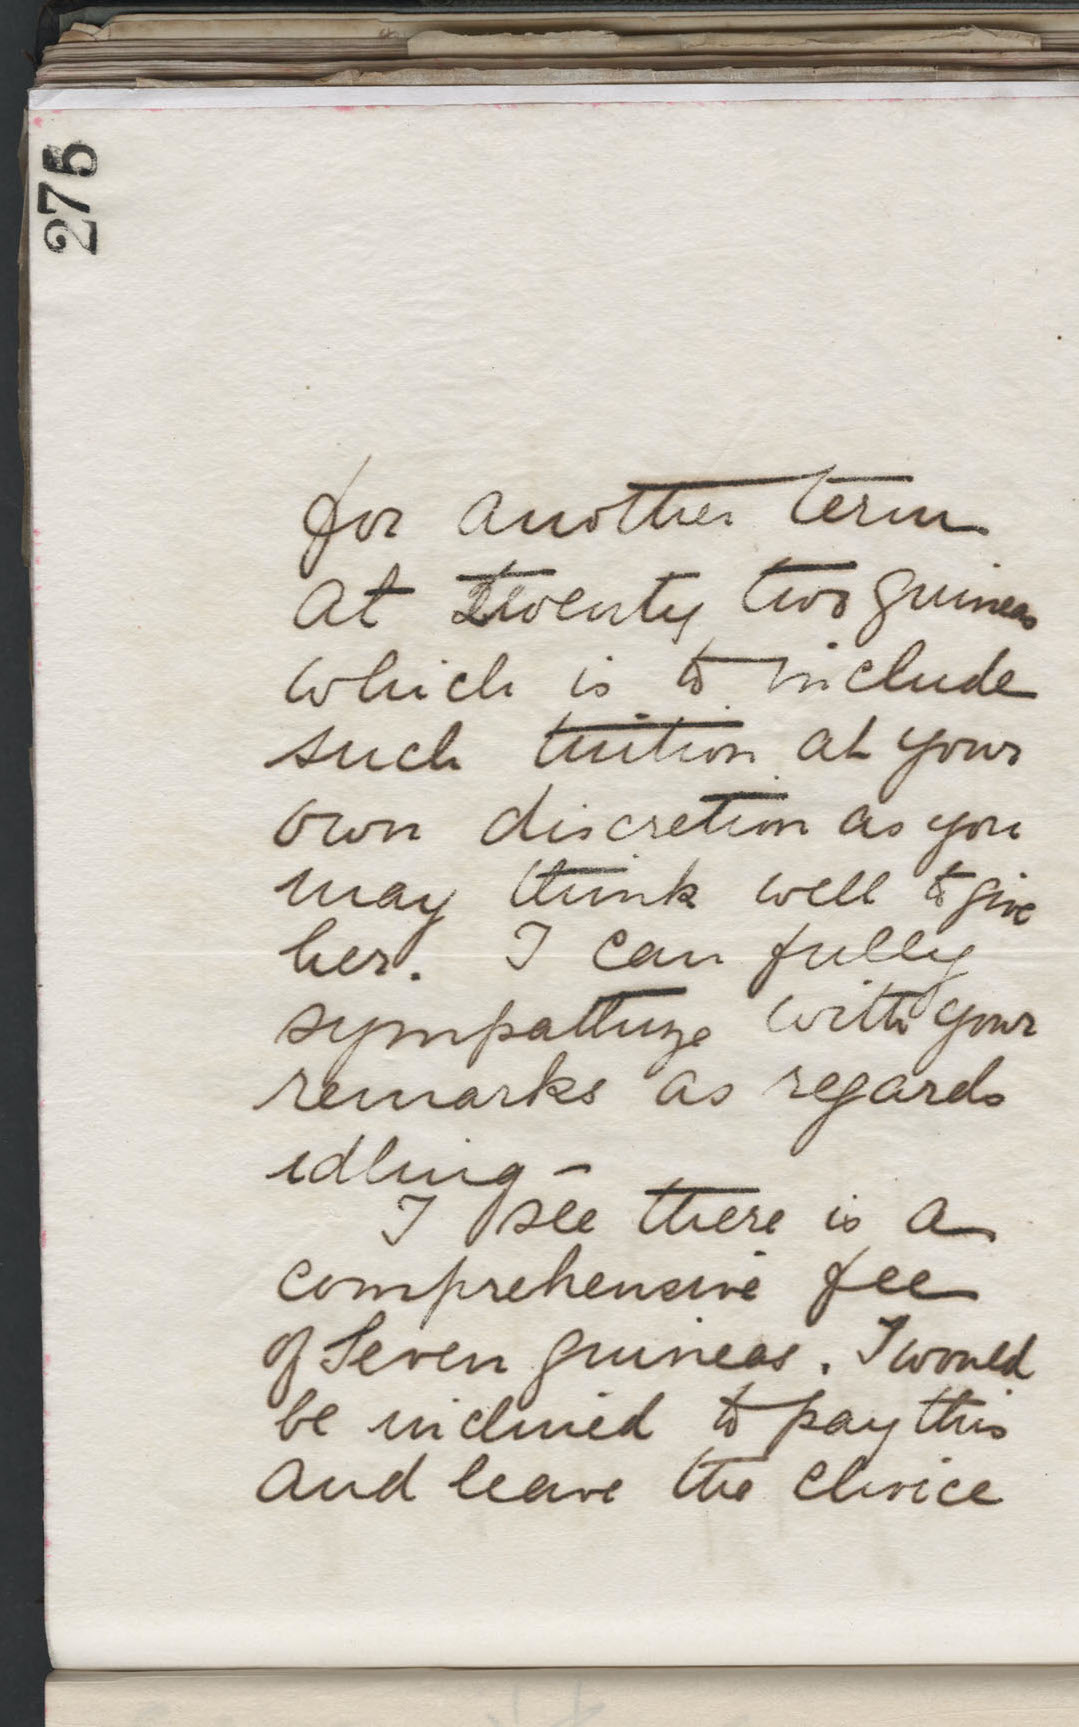 275
for another term
at twenty two guineas
which is to include
such tuition at your
own discretion as you
may think well to give
her. I can fully
sympathize with your
remarks as regards
idling –
I see there is a
comprehensive fee
of Seven guineas. I would
be inclined to pay this
and leave the choice